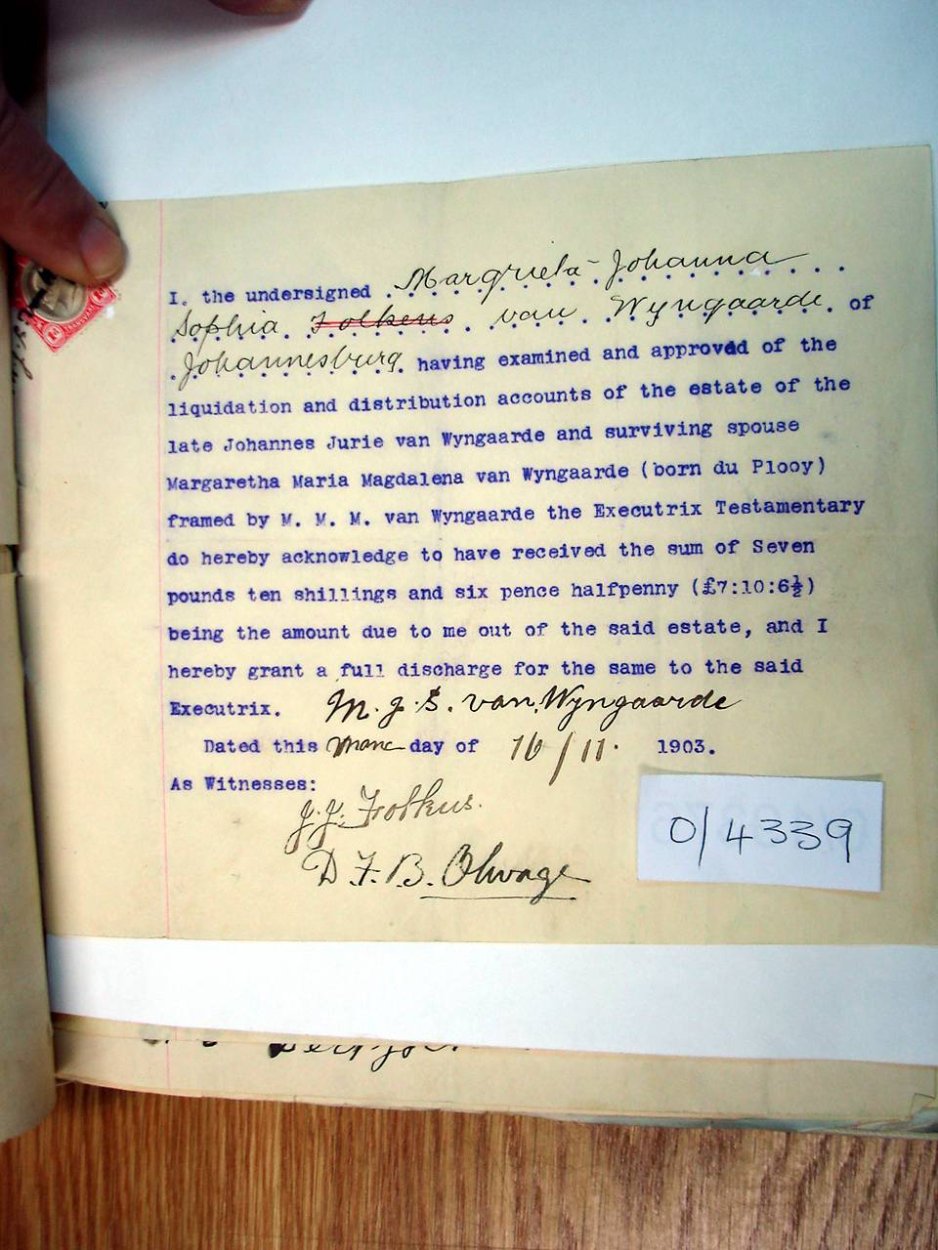 I. the undersigned Margrieta Johanna
Sophia Folkens van Wyngaarde. of
Johannesburg. having examined and approved of the
liquidation and distribution accounts of the estate of the
late Johannes Jurie van Wyngaarde and surviving spouse
Margaretha Maria Magdalena van Wyngaarde (born du Plooy)
framed by M. M. M. van Wyngaarde the Executrix Testamentary
do hereby acknowledge to have received the sum of Seven
pounds ten shillings and six pence halfpenny (£7:10:6½)
being the amount due to me out of the said estate, and I
hereby grant a full discharge for the same to the said
Executrix. M. J. S. van Wyngaarde
Dated this day of 16/11. 1903.
As Witnesses:
J. J. Folkus.
D. F. B. Olwage
0/4339